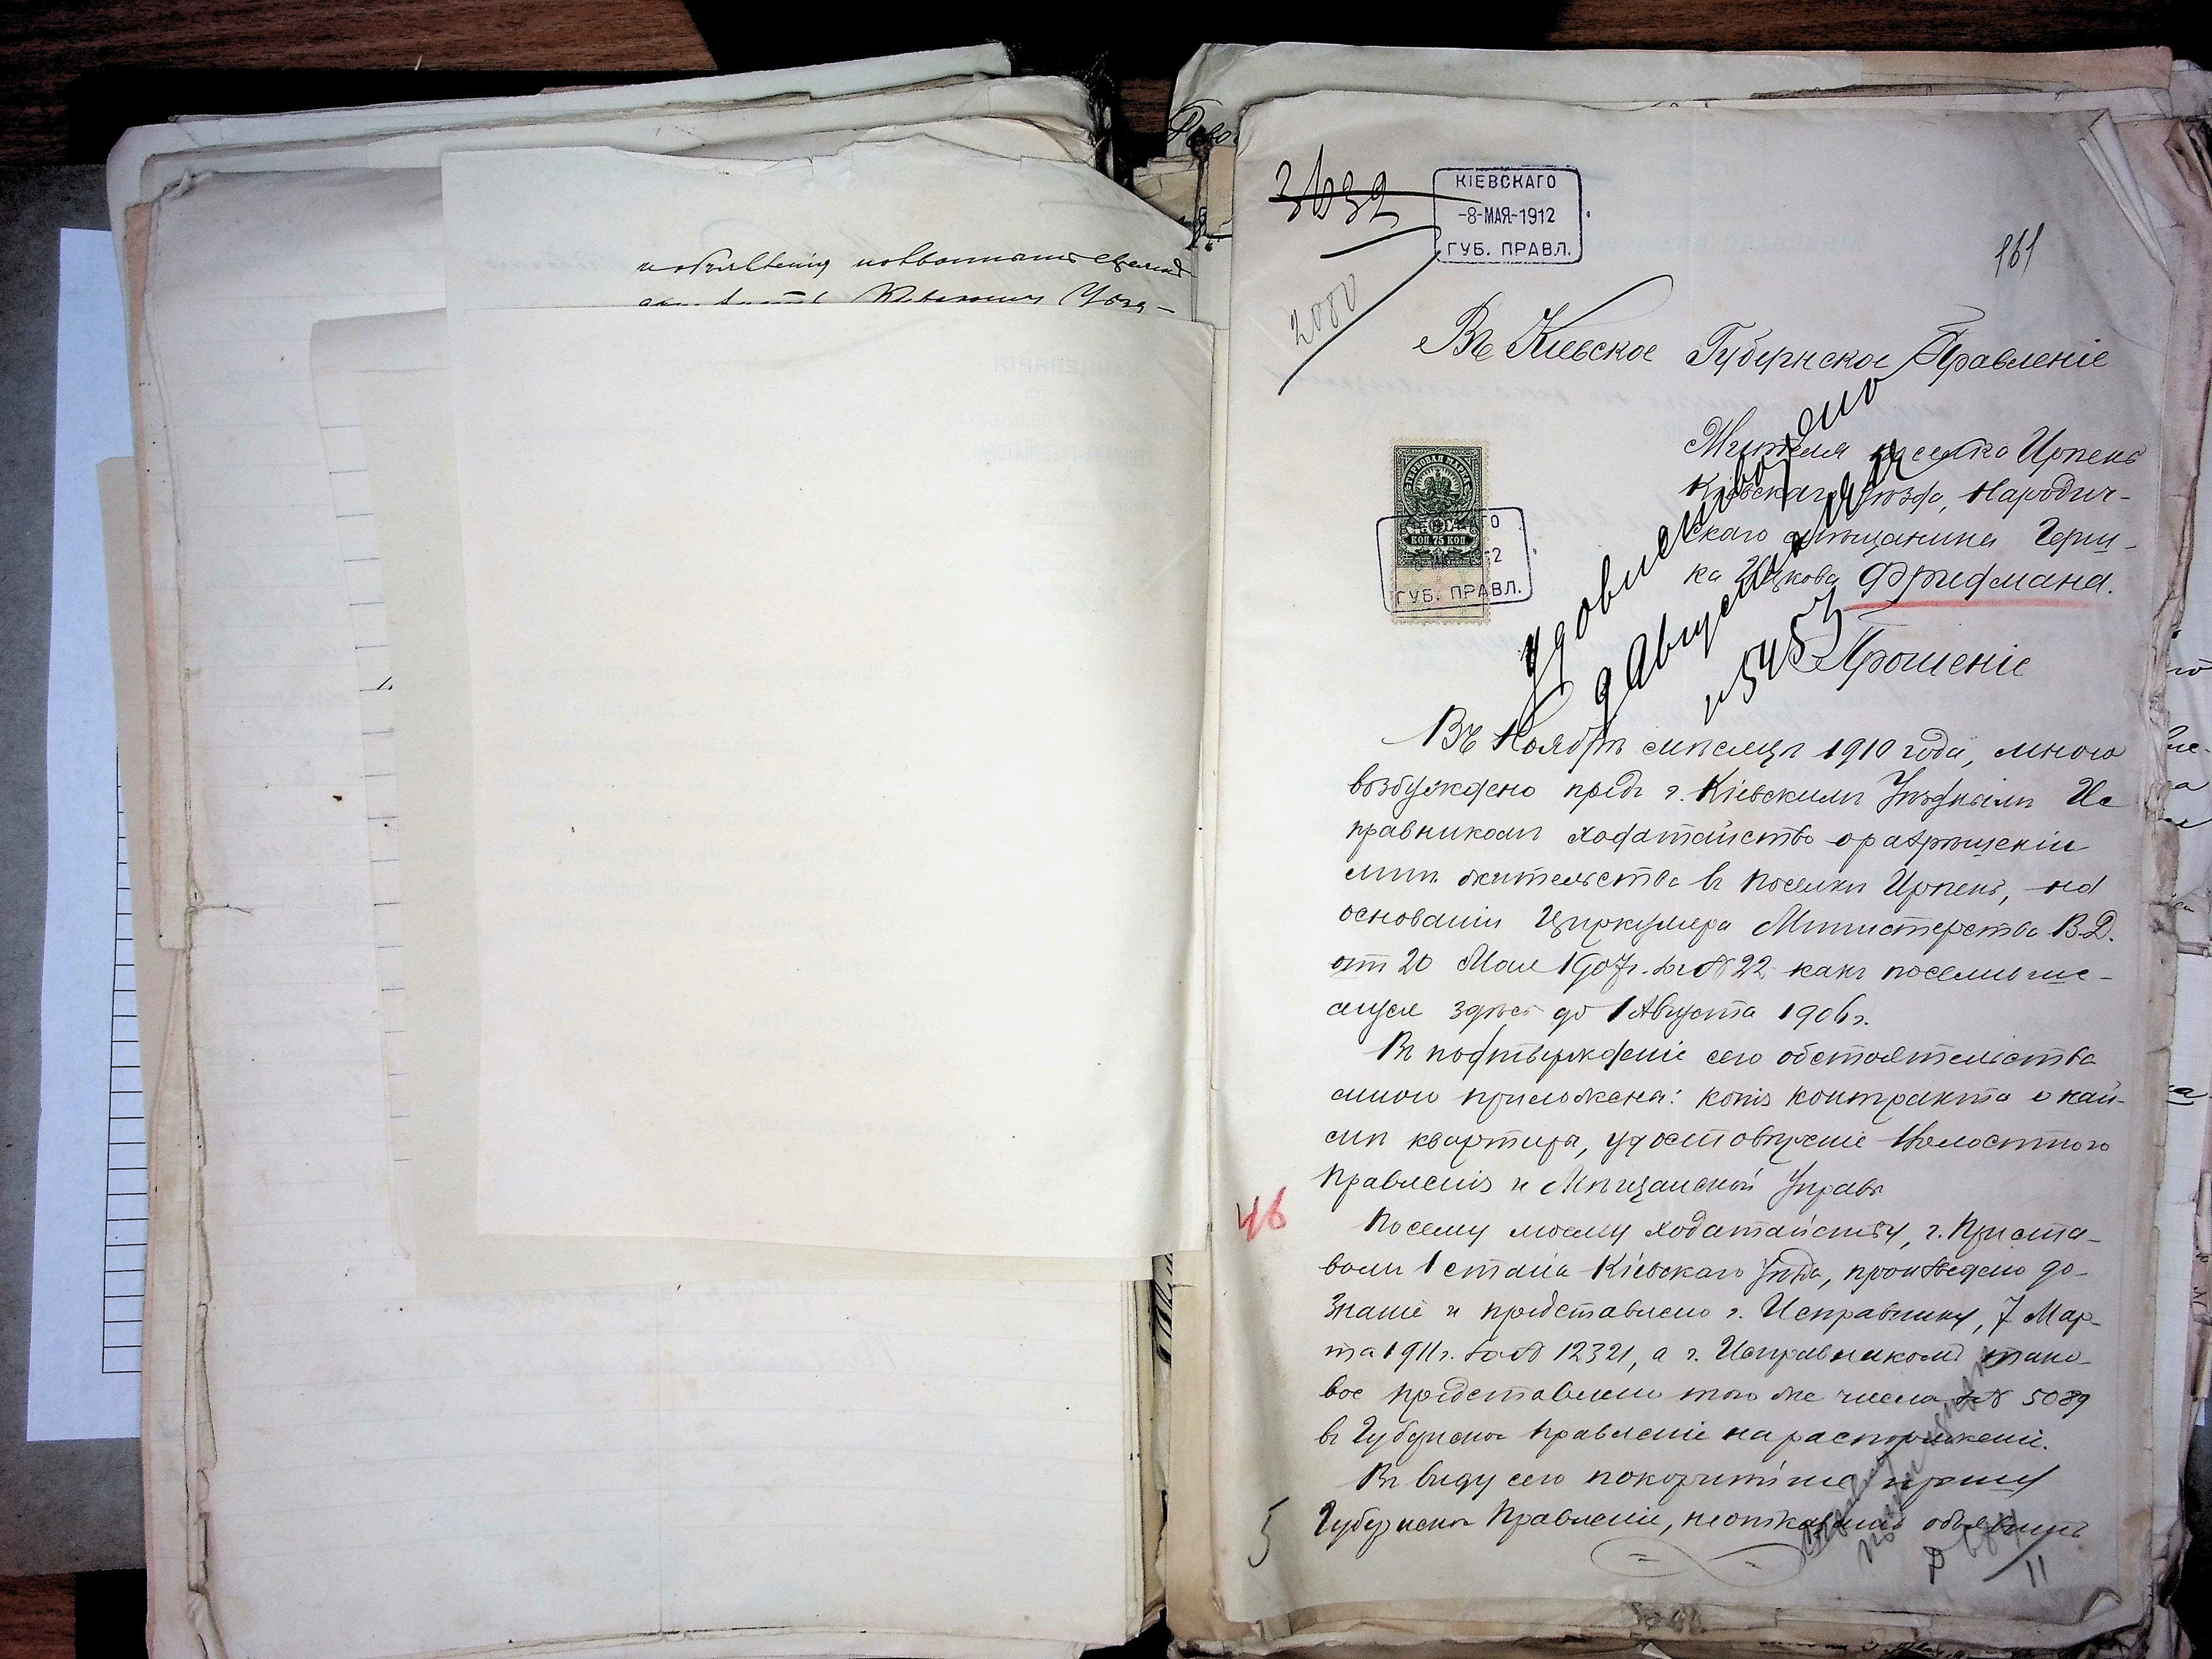 3632
КІЕВСКАГО
-8-МАЯ-1912
ГУБ. ПРАВЛ.
161
2080
Въ Кіевское Губернское Правленіе
Жителя поселка Ирпень
Кіевскаго уѣзда, Народич-
скаго мѣщанина Герш-
ка Ицкова Фридмана.
ГЕРБОВАЯ МАРКА
КОП. 75 КОП.
ГУБ. ПРАВЛ.
9 Августа
№ 5453
Прошеніе
Въ Ноябрѣ мѣсяцѣ 1910 года, мною
возбуждено предъ г. Кіевскимъ Уѣзднымъ Ис
правникомъ ходатайство о разрѣшеніи
мнѣ жительства въ поселкѣ Ирпень, на
основаніи Циркуляра Министерства В.Д.
отъ 20 Мая 1907 г. за № 22 какъ поселивше-
муся здѣсь до 1 Августа 1906 г.
Въ подтвержденіе сего обстоятельства
мною приложена: копія контракта о най-
мѣ квартиры, удостовѣреніе Волостного
Правленія и Мѣщанской Управы
По сему моему ходатайству, г. Приста-
вомъ 1 стана Кіевскаго Уѣзда, произведено до-
знаніе и представлено г. Исправнику, 7 Мар-
та 1911 г. за № 12321, а г. Исправникомъ тако-
вое представлено того же числа за № 5089
въ Губернское Правленіе на распоряженіе.
Въ виду сего покорнѣйше прошу
Губернское Правленіе, не отказать объявить
46
5
11